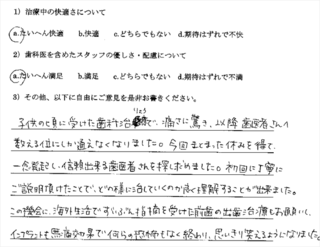 1) 治療中の快適さについて
a.たいへん快適 b.快適 c.どちらでもない d.期待はずれで不快
2) 歯科医を含めたスタッフの優しさ・配慮について
a.たいへん満足 b.満足 c.どちらでもない d.期待はずれで不満
3) その他、以下に自由にご意見を是非お書きください。
子供の頃に受けた歯科治療で、痛さに驚き、以降歯医者さんへ
数える位にしか通えなくなりました。今回まとまった休みを得て、
一念発起し信頼出来る歯医者さんを探し求めました。初回に丁寧に
ご説明頂けたことで、どの様に治していくのか良く理解することが出来ました。
この機会に、海外生活でずいぶん指摘を受けた前歯の出歯治療もお願いし、
インプラントも無痛効果で何らの恐怖もなく終わり、思いきり笑えるようになりました。